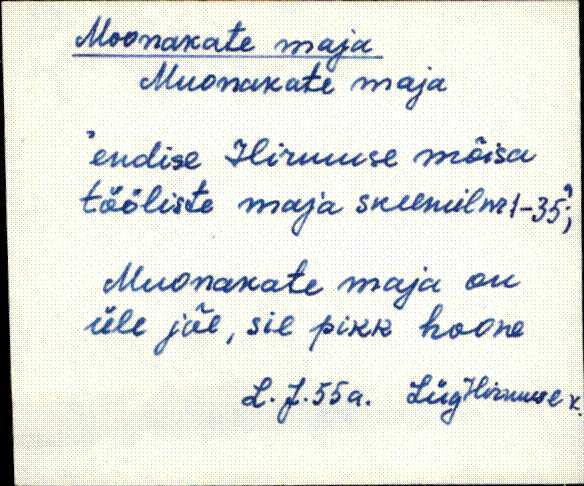 Moonakate maja
Muonakate maja
"endise Hirmuse mõisa
tööliste maja skeemil nr 1-35";
Muonakate maja on
üle jõe, sie pikk hoone
L. J. 55a. Lüg Hirmuse k.